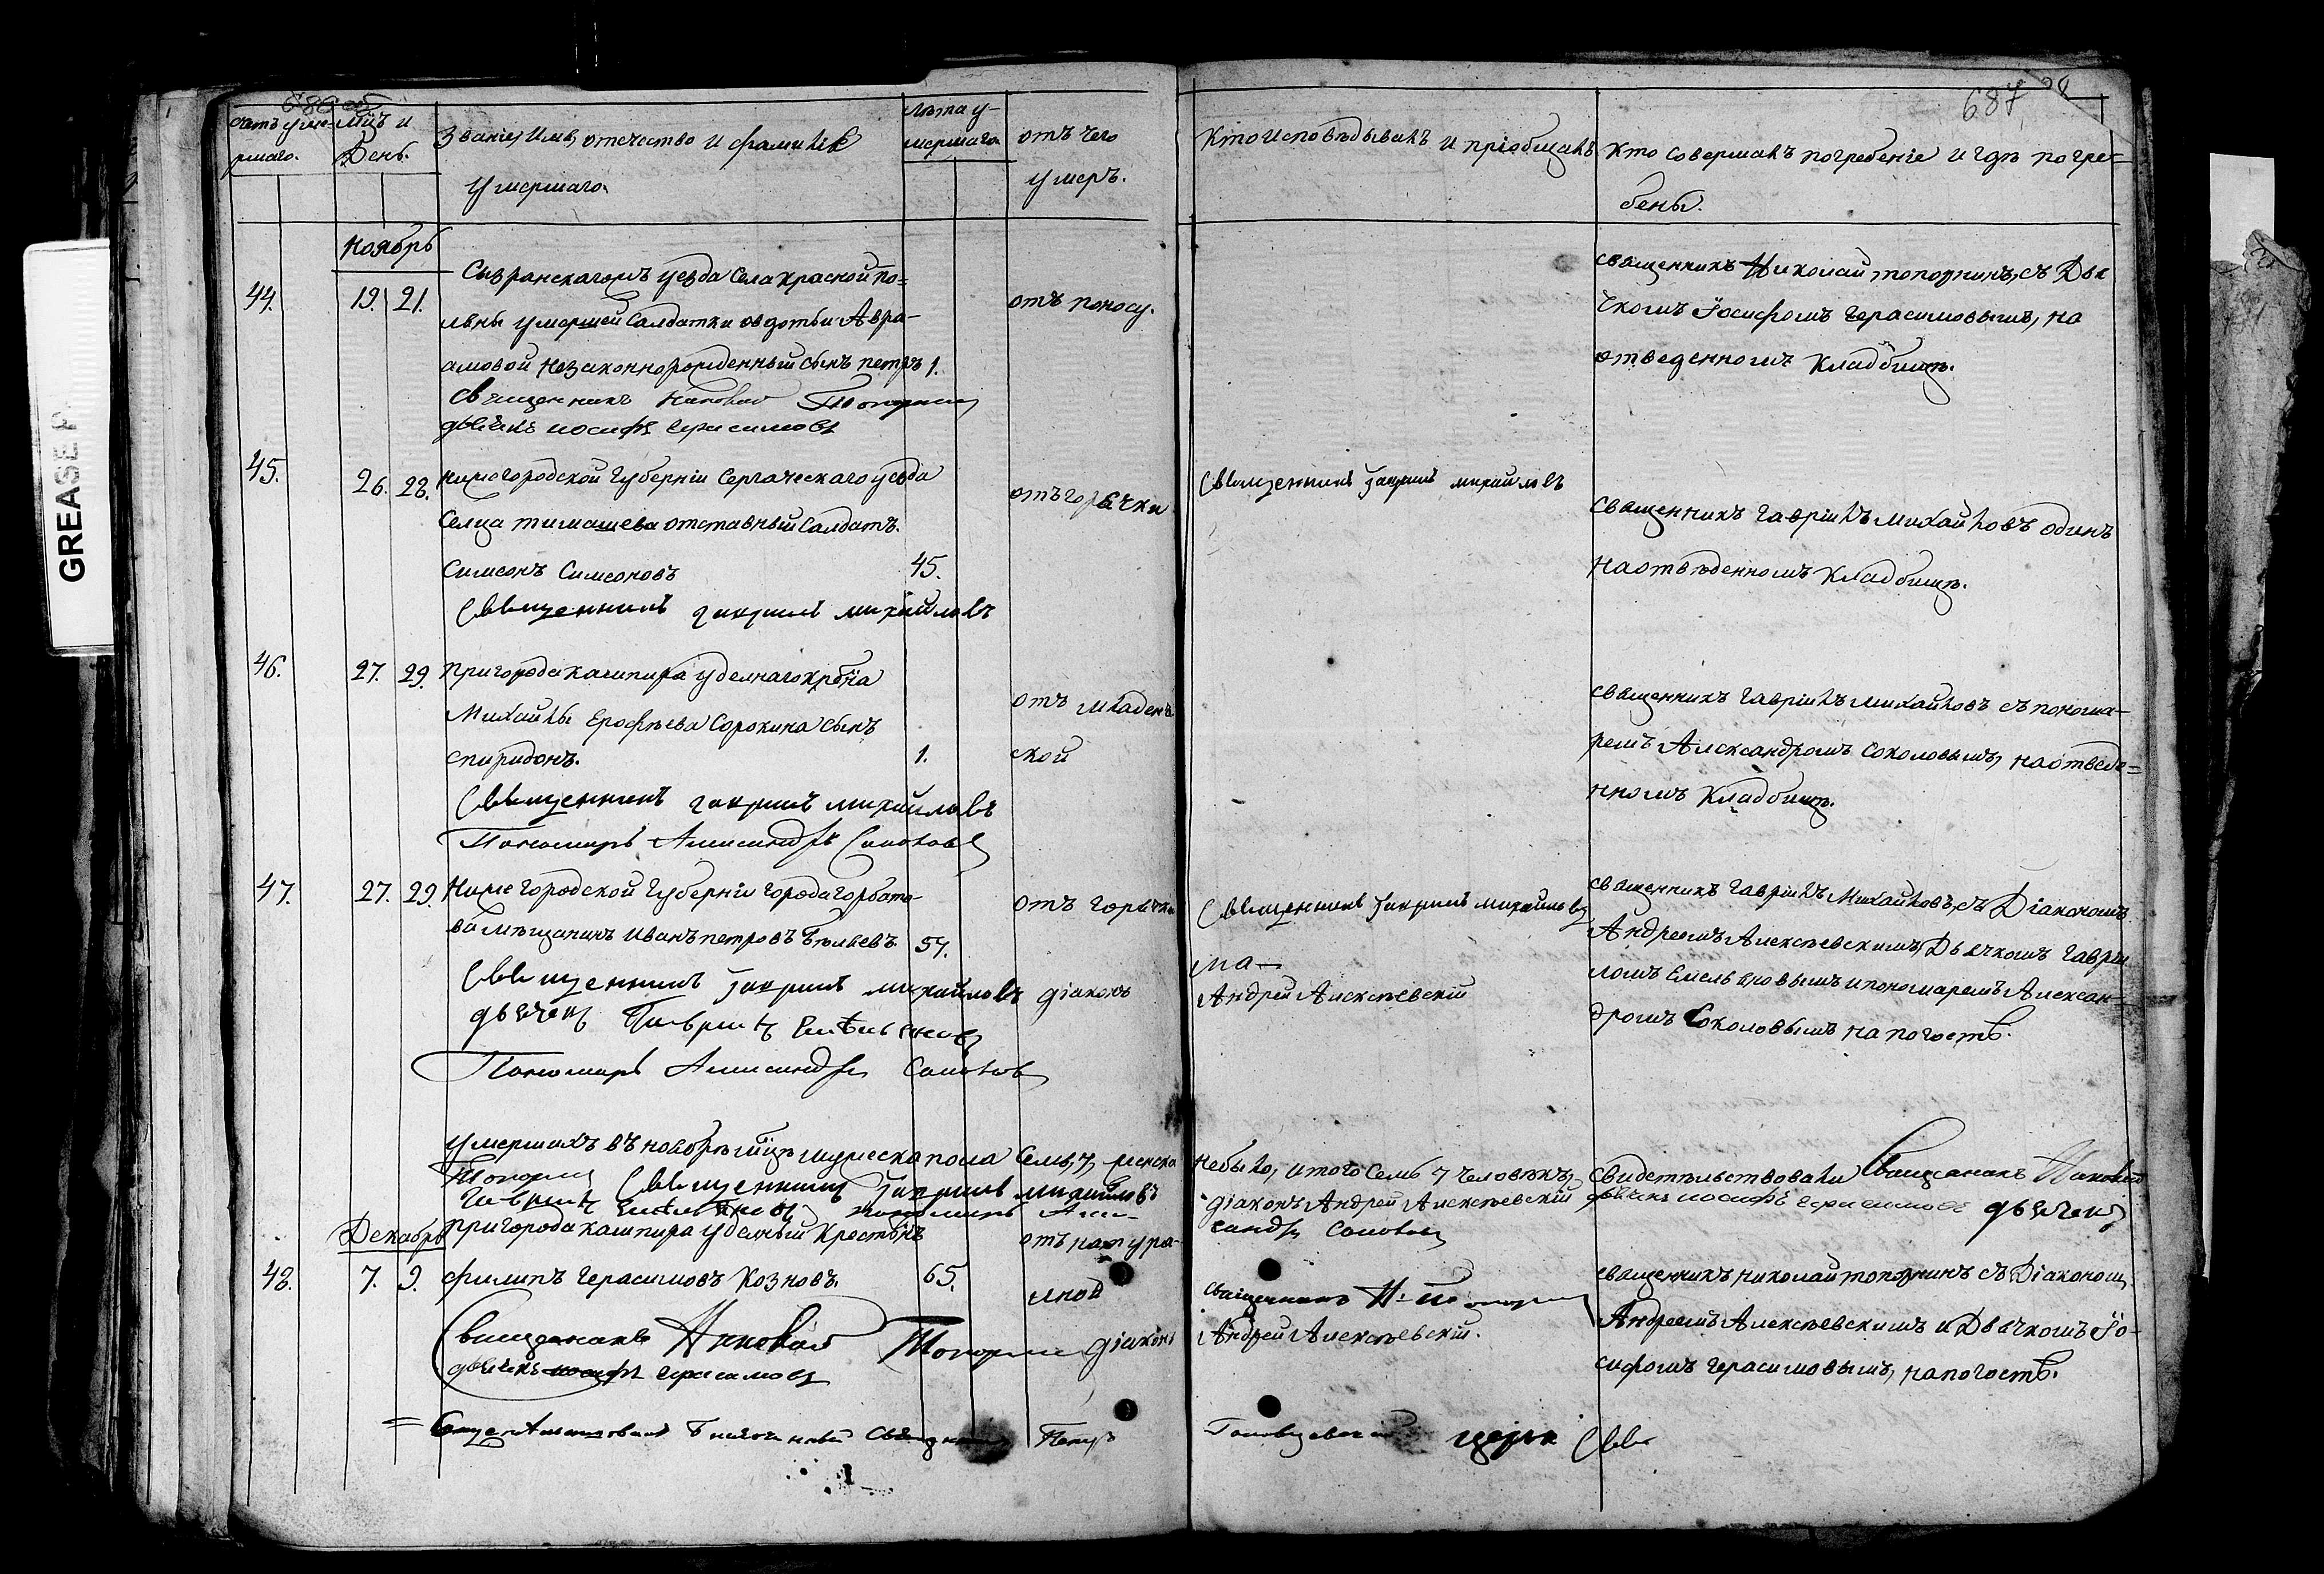 686 об
687
Счетъ уме-
ршаго.
Мцъ и
День.
Званіе, Имя, отечество и фамиліе
умершаго.
Лѣта у-
мершаго.
отъ чего
умеръ.
Кто исповѣдывалъ и пріобщалъ
Кто совершалъ погребеніе и гдѣ погре-
бены.
Ноябрь
44.
19. 21.
Сызранскагомъ уезда Села Красной по-
ляны умершей Салдатки Овдотьи Авра-
амовой незаконнорожденный сынъ петръ 1.
отъ поносу.
священникъ Николай топорнинъ, съ Дья
чкомъ Іосифомъ Герасимовымъ, на
отведенномъ Кладбищѣ.
Священникъ Николай Топорнин
дьячекъ иосифъ Герасимовъ
45.
26. 28.
нижегородской Губерніи Сергаческаго уезда
Селца тимашева отставный Салдатъ
Симеонъ Симеоновъ
45.
отъ горячки
Священникъ Гавриилъ михайловъ
Священникъ Гавріилъ Михайловъ одинъ
На отвѣденномъ Кладбищѣ.
Священникъ гавриилъ михайловъ
46.
27. 29.
пригорода кашпира уделнаго крѣна
Михайлы Ерофѣева Сорокина сынъ
спиридонъ.
1.
отъ младен-
ской
священникъ Гавріилъ Михайловъ съ понома-
ремъ Александромъ Соколовымъ, на отведе-
нномъ Кладбищѣ.
Священникъ гавриилъ михайловъ
Пономарь Александръ Соколовъ
47.
27. 29.
Нижегородской Губерніи города Горбато-
ва мѣщанинъ Иванъ петровъ Бѣляевъ.
57.
отъ горячки
Священникъ Гавриилъ михайловъ
священникъ Гавріилъ Михайловъ, съ Діакономъ
Андреемъ Алексѣевскимъ, Дьячкомъ Гаври
ломъ Емельяновымъ и пономаремъ Алексан-
дромъ Соколовымъ на погостѣ.
Священникъ Гавриилъ михайловъ діаконъ
Андрей Алексѣевскій
дьячекъ Гавриилъ Емельяновъ
Пономарь Александръ Соколовъ
умершихъ въ ноябрѣ мцѣ мужеска пола Семь, 7, женска
небыло, итого Семь 7 человѣкъ, свидетельствовали Священникъ Николай
Топорнин Священникъ Гавриилъ михайловъ
діаконъ Андрей Алексѣевскій дьячекъ иосифъ Герасимовъ дьячекъ
Гавриилъ Емельяновъ пономарь Алек-
сандръ Соколовъ
Декабрь
48.
7. 9.
пригорода кашпира уделный Крестьнъ
филипъ Герасимовъ Козновъ.
65.
отъ натура-
лной
священникъ Н. Топорнин
священникъ Николай топорнинъ съ Діакономъ
Андреемъ Алексѣевскимъ и Дьячкомъ Іо-
сифомъ Герасимовымъ, на погостѣ.
Священникъ Николай Топорнин діаконъ
Андрей Алексѣевскій.
дьячекъ иосифъ Герасимовъ
Петръ
церк
GREASE P